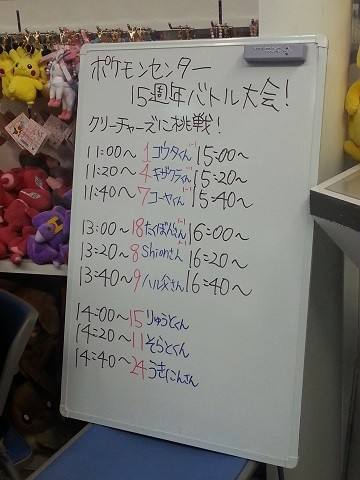 ポケモンセンター
15周年バトル大会!
クリーチャーズに挑戦!
11:00〜 1 コウタくん 15:00〜
11:20〜 4 キザクラくん 15:20〜
11:40〜 7 コーヤくん 15:40〜
13:00〜 18 たくぽんさん 16:00〜
13:20〜 8 Shionさん 16:20〜
13:40〜 9 ハル父さん 16:40〜
14:00〜 15 りゅうとくん
14:20〜 11 そらとくん
14:40〜 24 うきにんさん